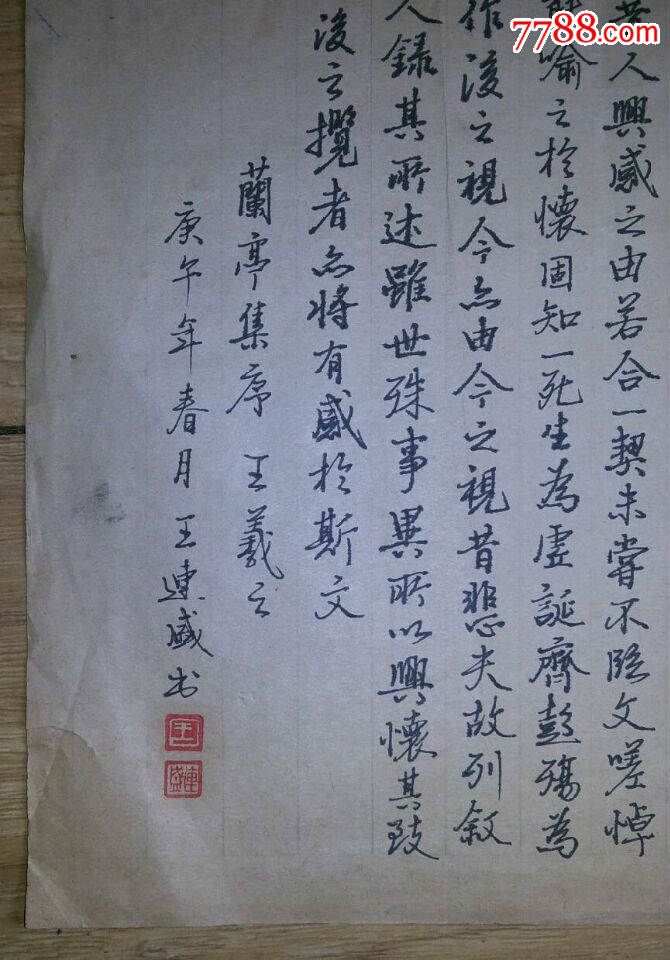 7788.com
昔人興感之由若合一契未甞不臨文嗟悼
能喻之於懷固知一死生為虛誕齊彭殤為
作後之視今亦由今之視昔悲夫故列敘
人錄其所述雖世殊事異所以興懷其致
後之攬者亦將有感於斯文
蘭亭集序 王羲之
庚午年春月王連盛书
王
連盛